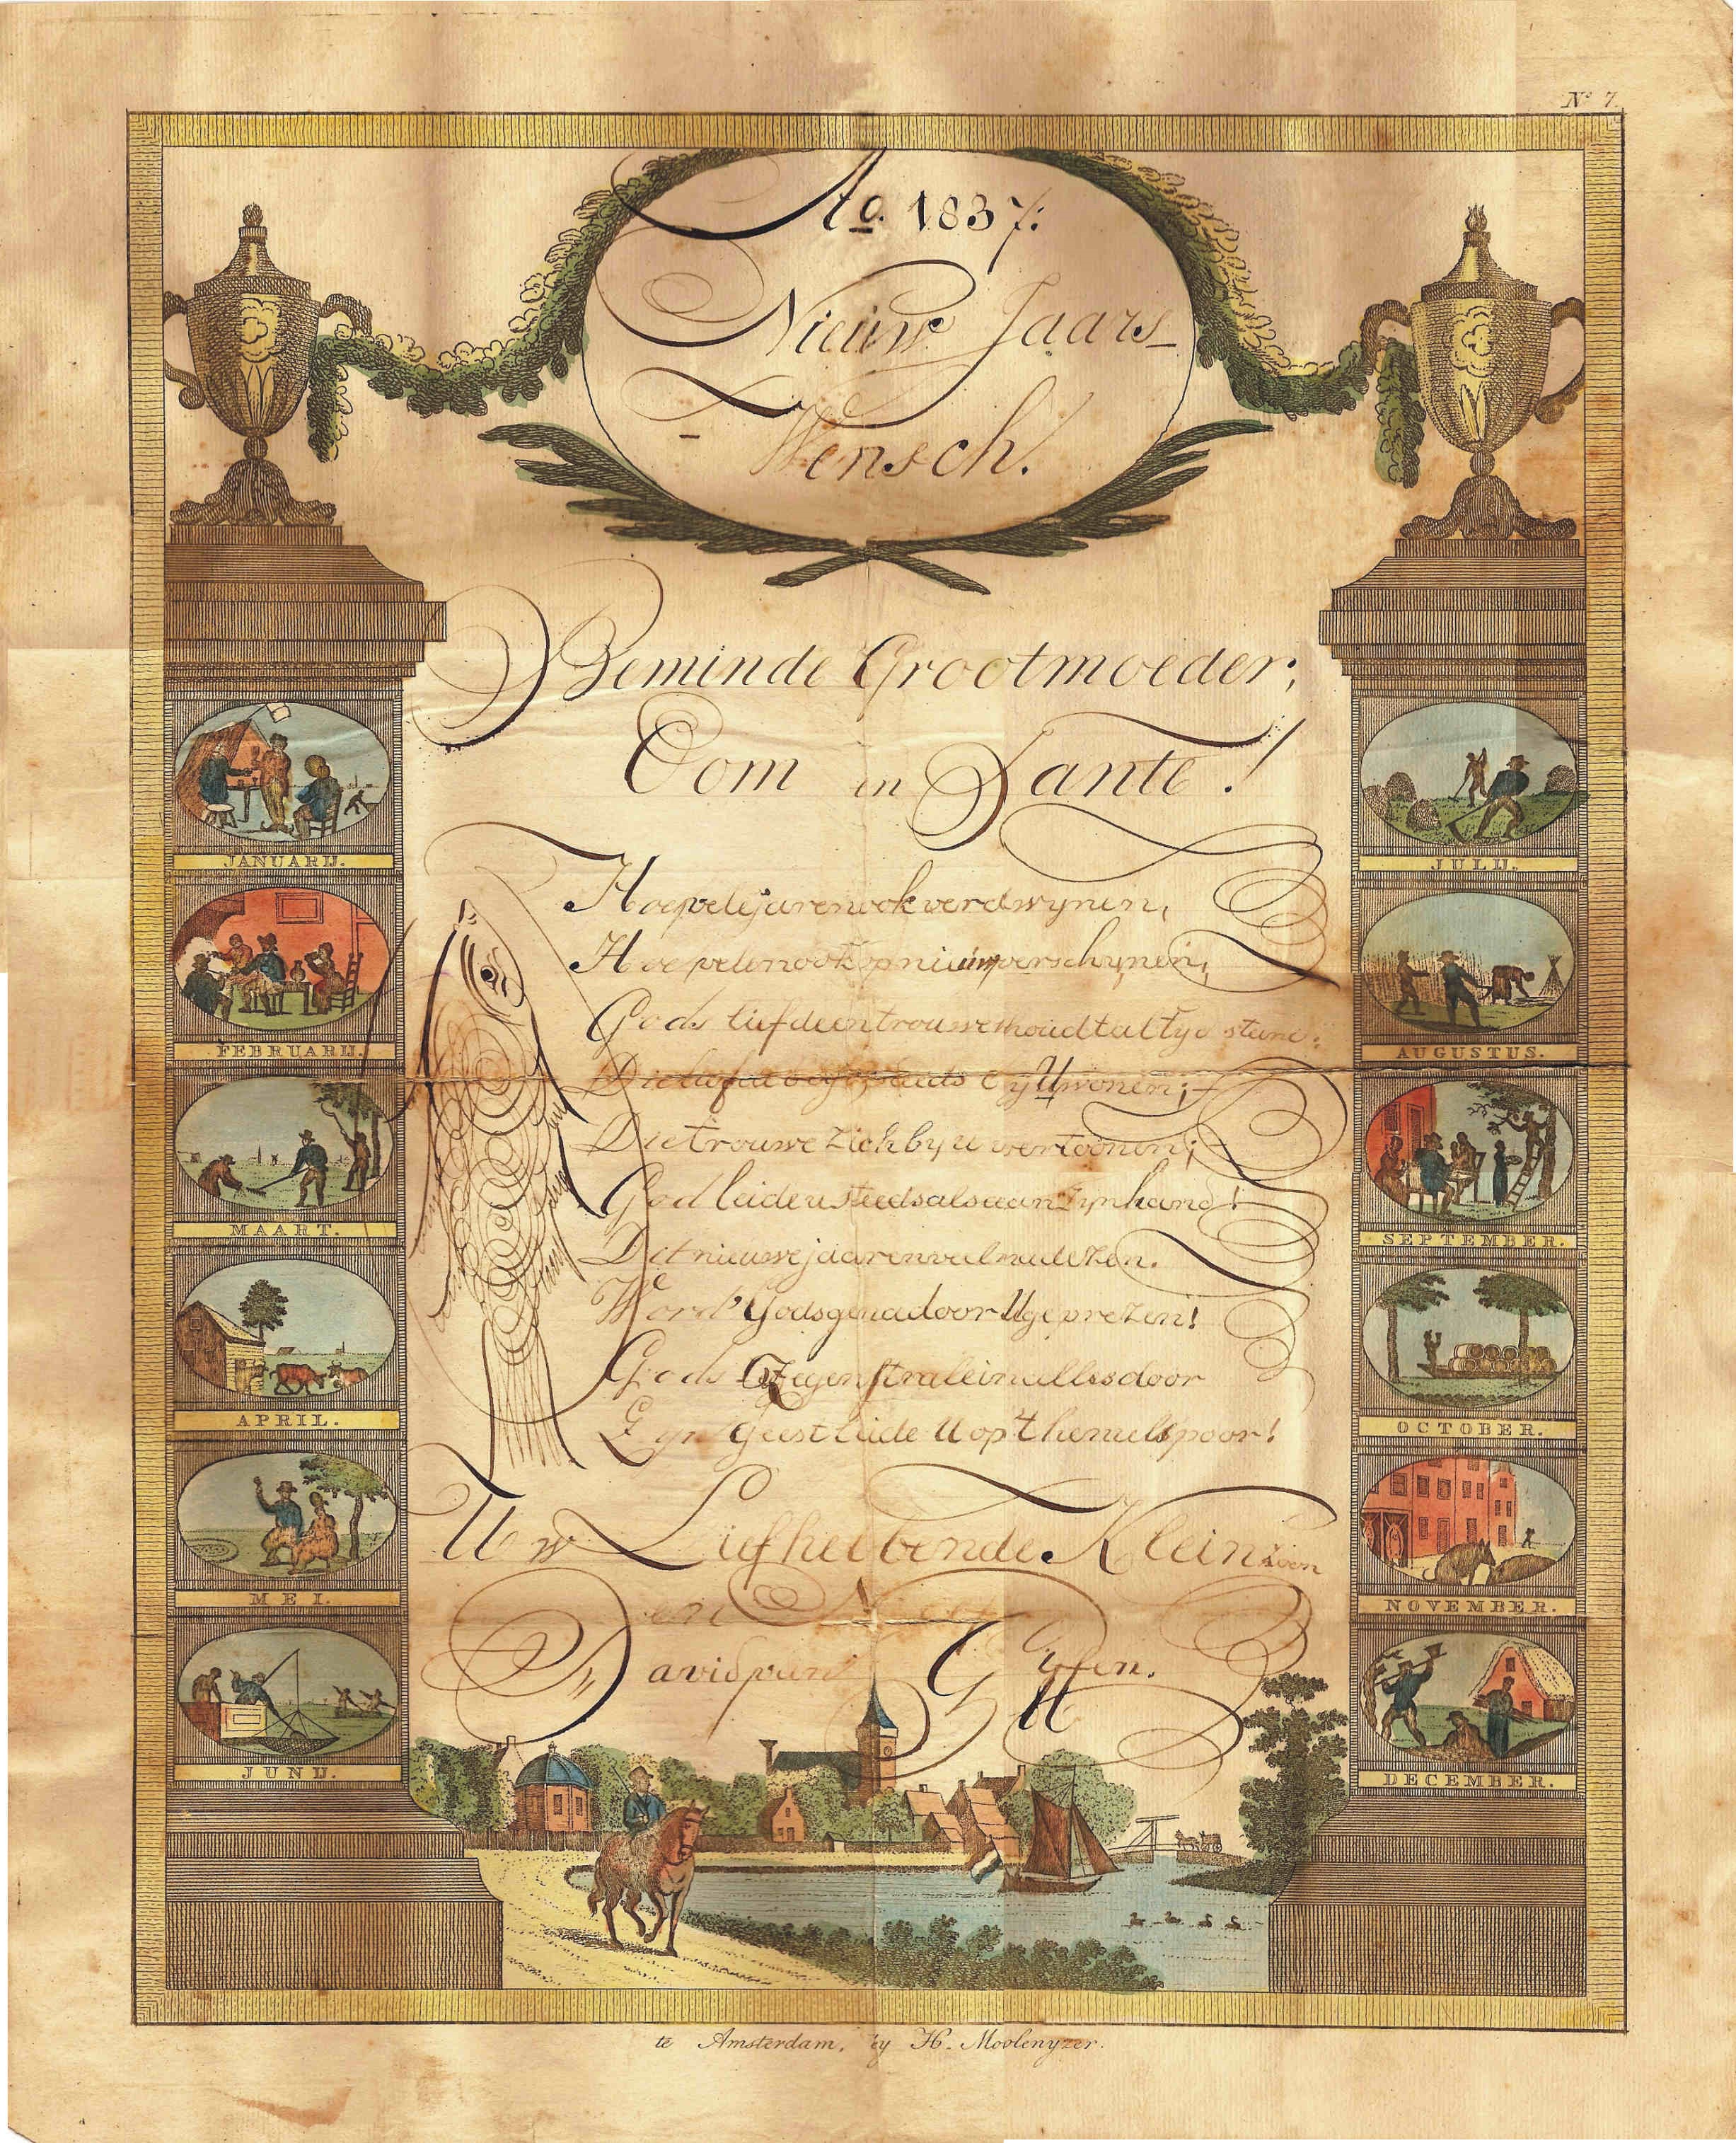 No. 7.
Ao. 1837:
Nieuw Jaars
- Wensch!
Beminde Grootmoeder,
Oom en Tante!
Hoevelejarenookverdwynen,
Hoevelenookopnieuwverschynen,
Gods liefdeentrouwehoudtaltyd stand:
Dieliefde steeds by U wonen;
Dietrouwe zich by u vertoonen;
God leide u steedsalsaanzynhand!
Dit nieuwejaarenveelnadezen.
Word' Gods doorUgeprezen!
Gods Zegen straleinallesdoor
Zyn Geest leide U op 't hemelspoor!
Uw Liefhebbende Kleinzoon
en Neef
David van Gyfen.
JANUARIJ.
FEBRUARIJ.
MAART.
APRIL.
MEI.
JUNIJ.
JULIJ.
AUGUSTUS.
SEPTEMBER.
OCTOBER.
NOVEMBER.
DECEMBER.
te Amsterdam, by H. Moolenyzer.